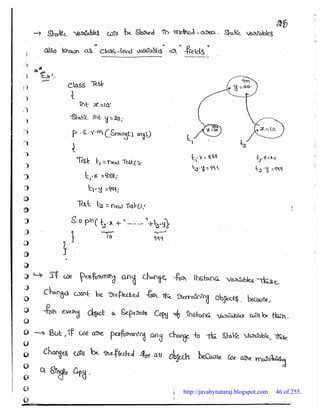 → Static variables will be Stored in method-area. Static variables
also known as "class-level variables" or "fields".
Ex:
class Test
{
int x=10;
static int y=20;
p.s.v.m(String[] args)
{
Test t1=new Test();
t1.x=888;
t1.y=999;
Test t2=new Test();
S.o.pln(t2.x+"-----"+t2.y);
10 999
}
}
y=20
x=10
t1
t2
t1.x=888
t1.y=999
t2.x=10
t2.y=999
↳ If we performing any change for instance variables these
changes won't be reflected for the remaining objects. because,
for every object a Seperate Copy of instance variables will be there.
→ But, if we are performing any change to the static variable, these
changes will be reflected for all objects because we are maintaining
a Single Copy.
http://javabynataraj.blogspot.com 46 of 255.